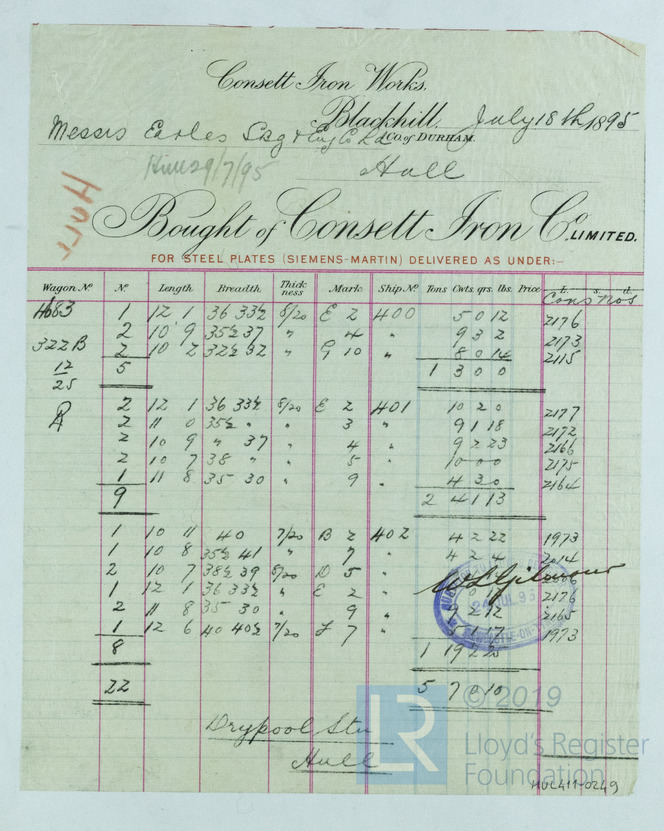 Consett Iron Works.
Blackhill, July 18th 1895
Messrs Earles Sbg & Eng Co Ld Co. OF DURHAM.
29/7/95 Hull
Hull
Bought of Consett Iron Co. LIMITED.
FOR STEEL PLATES (SIEMENS-MARTIN) DELIVERED AS UNDER:-
Wagon No No Length Breadth Thickness Mark Ship No Tons Cwts. qrs. lbs. Price £ s. d.
Cons Nos
4683 1 12 1 36 33½ 8/20 E 2 400 5 0 12 2176
2 10 9 35½ 37 " 4 " 9 3 2 2173
322B 2 10 2 32½ 32 " G 10 " 8 0 14 2115
12/25 5 1 3 0 0
2 12 1 36 33½ 8/20 E 2 401 10 2 0 2177
2 11 0 35½ " " 3 " 9 1 18 2172
2 10 9 " 37 " 4 " 9 2 23 2166
2 10 7 38 " " 5 " 10 0 0 2175
1 11 8 35 30 " 9 " 4 3 0 2164
9 2 4 1 13
1 10 11 40 7/20 B 2 402 4 2 22 1973
1 10 8 35½ 41 " 7 " 4 2 4 2014
2 10 7 38½ 39 8/20 D 5 "
1 12 1 36 33½ " E 2 " 2176
2 11 8 35 30 " 9 " 9 2 12 2165
1 12 6 40 40½ 7/20 F 7 " 5 1 17 1973
8 1 19 2 25
22 5 7 0 10
Drypool Stn
Hull
© 2019
LR
Lloyd's Register
Foundation
HUL411-0249